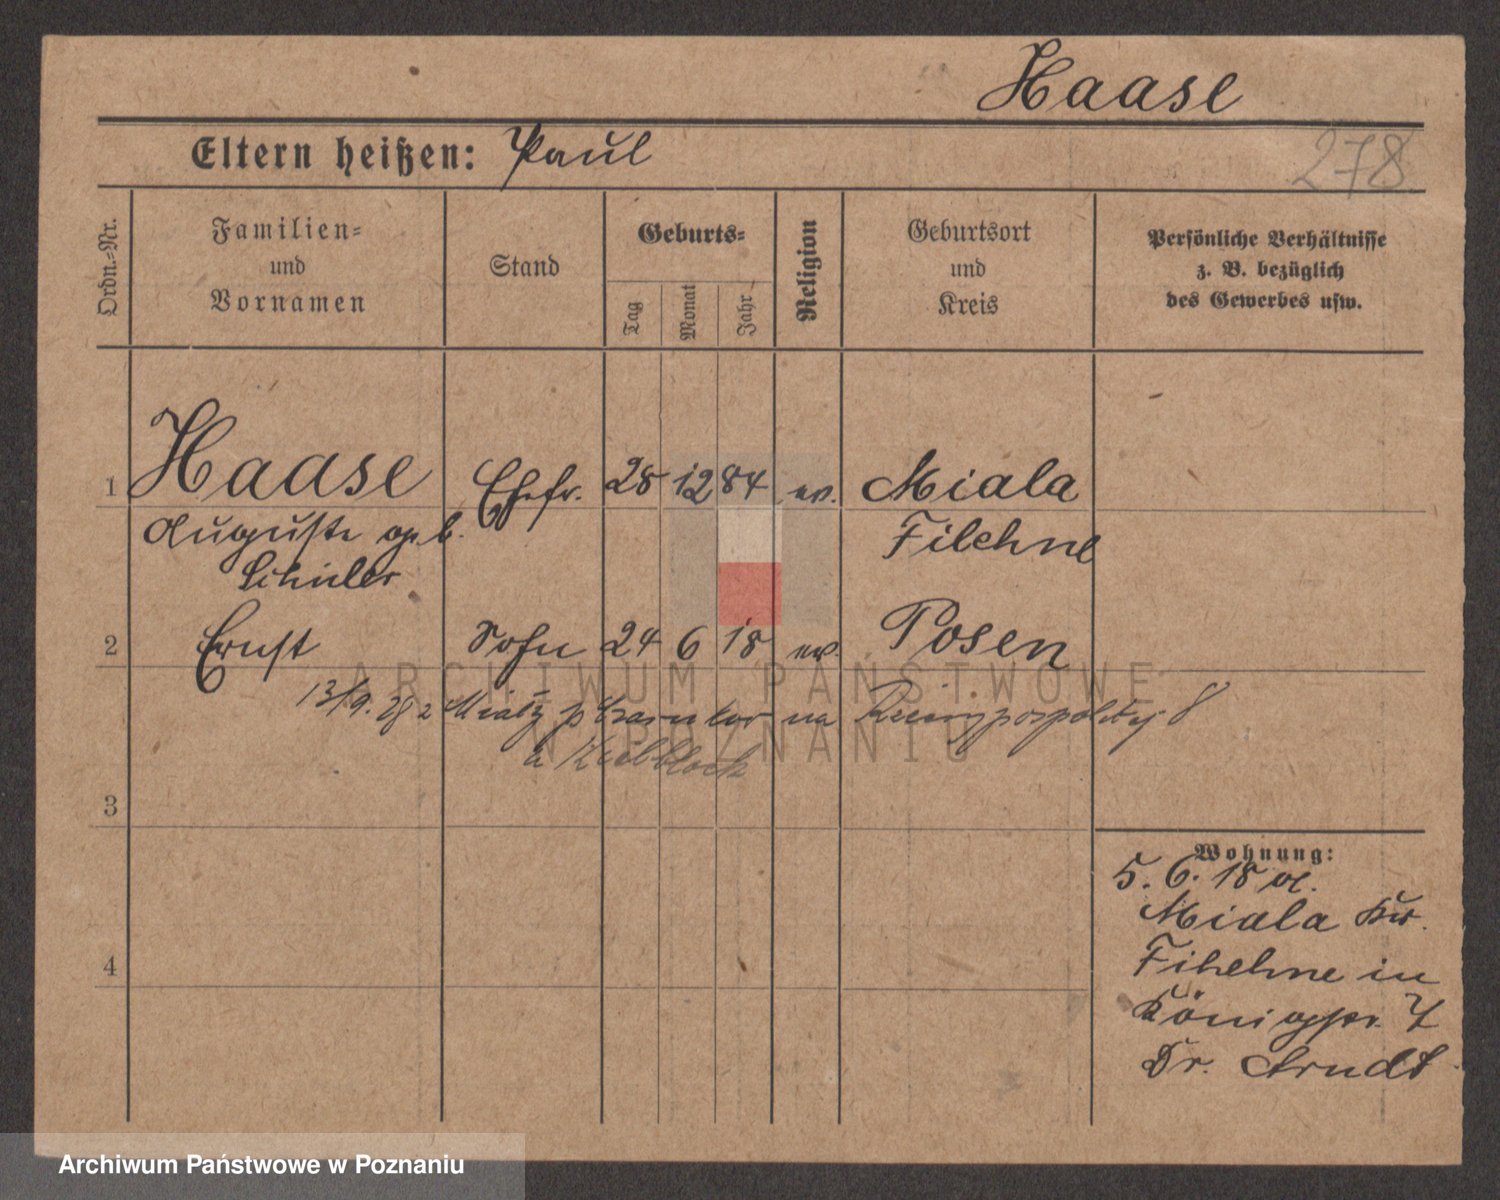 Haase
Eltern heißen: Paul
278
Ordn.-Nr.
Familien-
und
Vornamen
Stand
Geburts-
Tag
Monat
Jahr
Religion
Geburtsort
und
Kreis
Persönliche Verhältnisse
z. B. bezüglich
des Gewerbes usw.
1 Haase Ehefr. 28 12 84 ev. Miala
Auguste geb. Filehne
Schüler
2 Ernst Sohn 24 6 18 ev. Posen
13/9. na Rzeczypospolitej 8
3
Wohnung:
5. 6. 18 v.
Miala Kr.
Filehne in
4
Königspl. 7
Dr. Arndt
ARCHIWUM PAŃSTWOWE
W POZNANIU
Archiwum Państwowe w Poznaniu